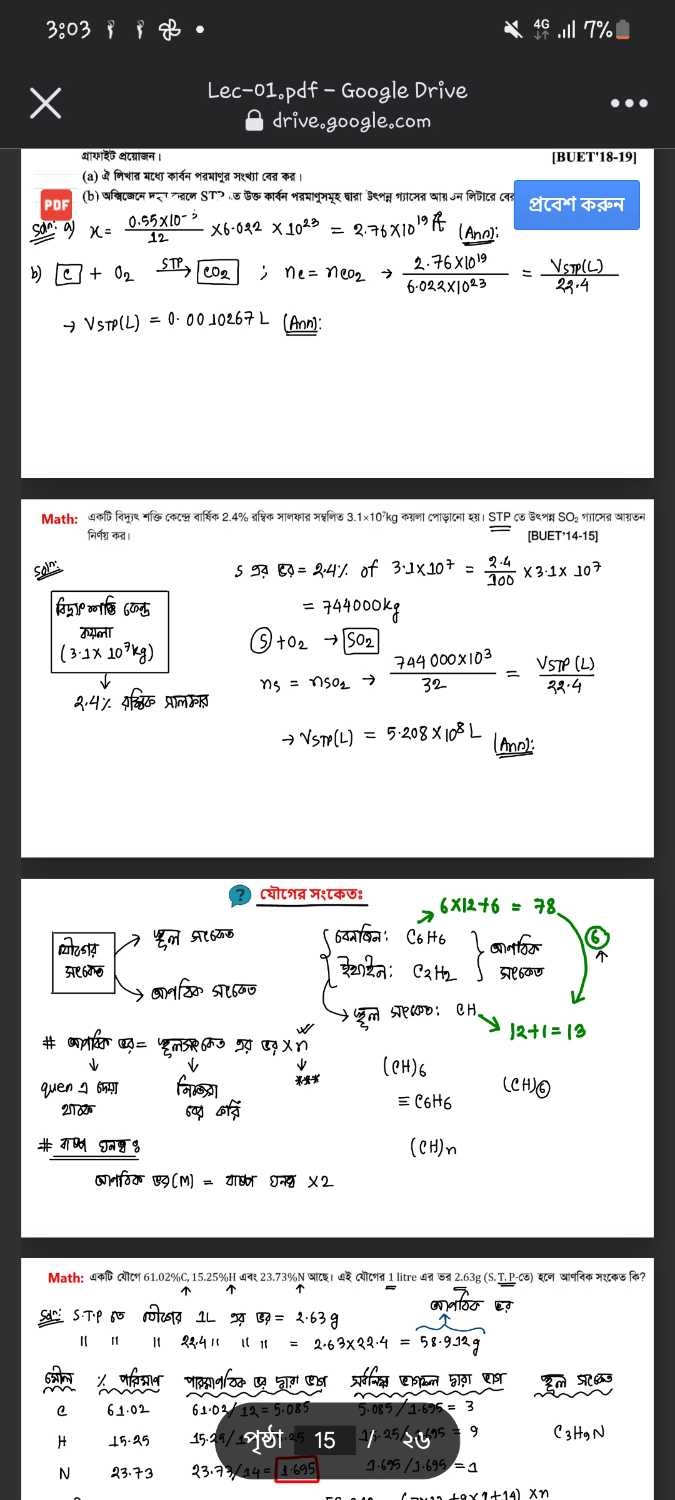 3:03
4G
7%
Lec-01.pdf – Google Drive
drive.google.com
গ্রাফাইট প্রয়োজন।
[BUET'18-19]
(a) ঐ লিখার মধ্যে কার্বন পরমাণুর সংখ্যা বের কর।
(b) অক্সিজেনে করলে উক্ত কার্বন পরমাণুসমূহ দ্বারা উৎপন্ন গ্যাসের লিটারে
PDF
প্রবেশ করুন
Soln: a) x = 0.55×10 /12 ×6.022 ×10²³ = 2.76×10¹⁹ টি (Ann):
b) C + O₂ STP→ CO₂ ; nc = nCO₂ → 2.76×10¹⁹/6.022×10²³ = VSTP(L)/22.4
→ VSTP(L) = 0.0010267 L (Ann):
Math: একটি বিদ্যুৎ শক্তি কেন্দ্রে বার্ষিক 2.4% রম্বিক সালফার সম্বলিত 3.1×10⁷kg কয়লা পোড়ানো হয়। STP তে উৎপন্ন SO₂ গ্যাসের আয়তন
নির্ণয় কর।
[BUET'14-15]
Soln:
S এর ভর = 2.4% of 3.1×10⁷ = 2.4/100 × 3.1×10⁷
= 744000kg
বিদ্যুৎ শক্তি কেন্দ্র
কয়লা
(3.1×10⁷kg)
↓
2.4% রম্বিক সালফার
S + O₂ → SO₂
ns = nSO₂ → 744000×10³/32 = VSTP(L)/22.4
→ VSTP(L) = 5.208×10⁸ L (Ann):
? যৌগের সংকেতঃ
যৌগের
সংকেত
→ স্থূল সংকেত
→ আণবিক সংকেত
বেনজিন: C₆H₆ → 6×12+6 = 78
ইথাইন: C₂H₂
আণবিক
সংকেত
6
→ স্থূল সংকেত: CH → 12+1 = 13
# আণবিক ভর = স্থূলসংকেত এর ভর × n
↓ ↓ ↓
quen এ দেয়া
থাকে
নিজেরা
বের করি
***
(CH)₆
≡ C₆H₆
(CH)6
(CH)n
# বাষ্প ঘনত্ব :
আণবিক ভর(M) = বাষ্প ঘনত্ব ×2
Math: একটি যৌগে 61.02%C, 15.25%H এবং 23.73%N আছে। এই যৌগের 1 litre এর ভর 2.63g (S.T.P-তে) হলে আণবিক সংকেত কি?
Soln: S.T.P তে যৌগের 1L এর ভর = 2.63 g
আণবিক ভর
" " " 22.4 " " " = 2.63×22.4 = 58.912g
মৌল % পরিমাণ পারমাণবিক ভর দ্বারা ভাগ সর্বনিম্ন ভাগফল দ্বারা ভাগ স্থূল সংকেত
C 61.02 61.02/12 = 5.085 5.085/1.695 = 3
H 15.25 = 9 C₃H₉N
N 23.73 23.73/14 = 1.695 1.695/1.695 = 1
পৃষ্ঠা 15 / ২৬